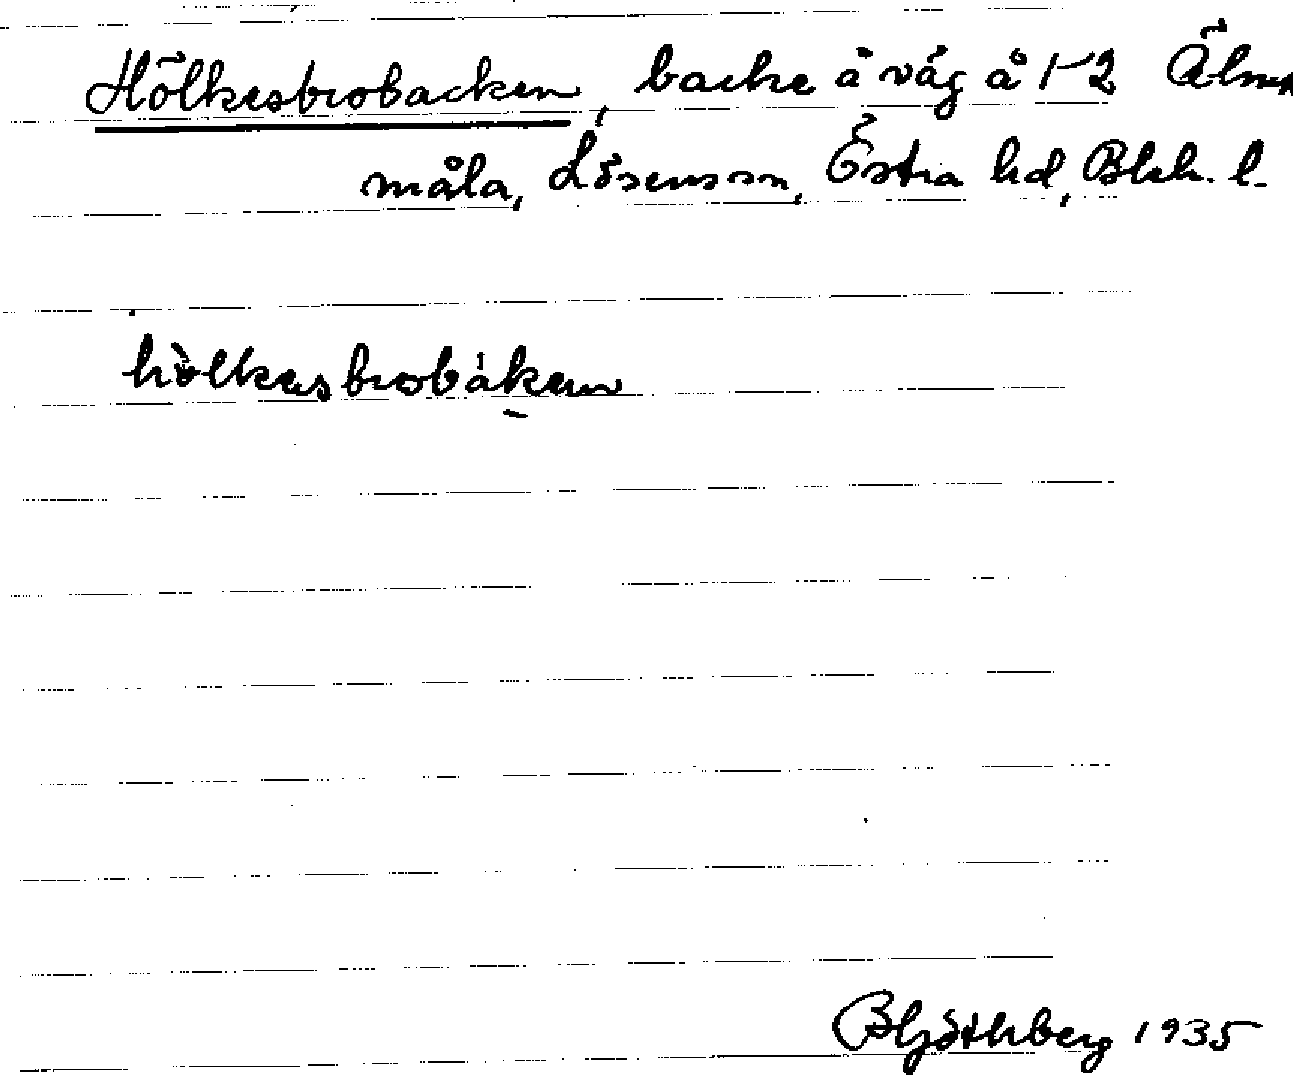 Hölkesbrobacken, backe å väg å 1-2 Älme
måla, Lösens sn, Östra hd, Blek. l.
hòlkesbrobáken
B Ljóthberg 1935